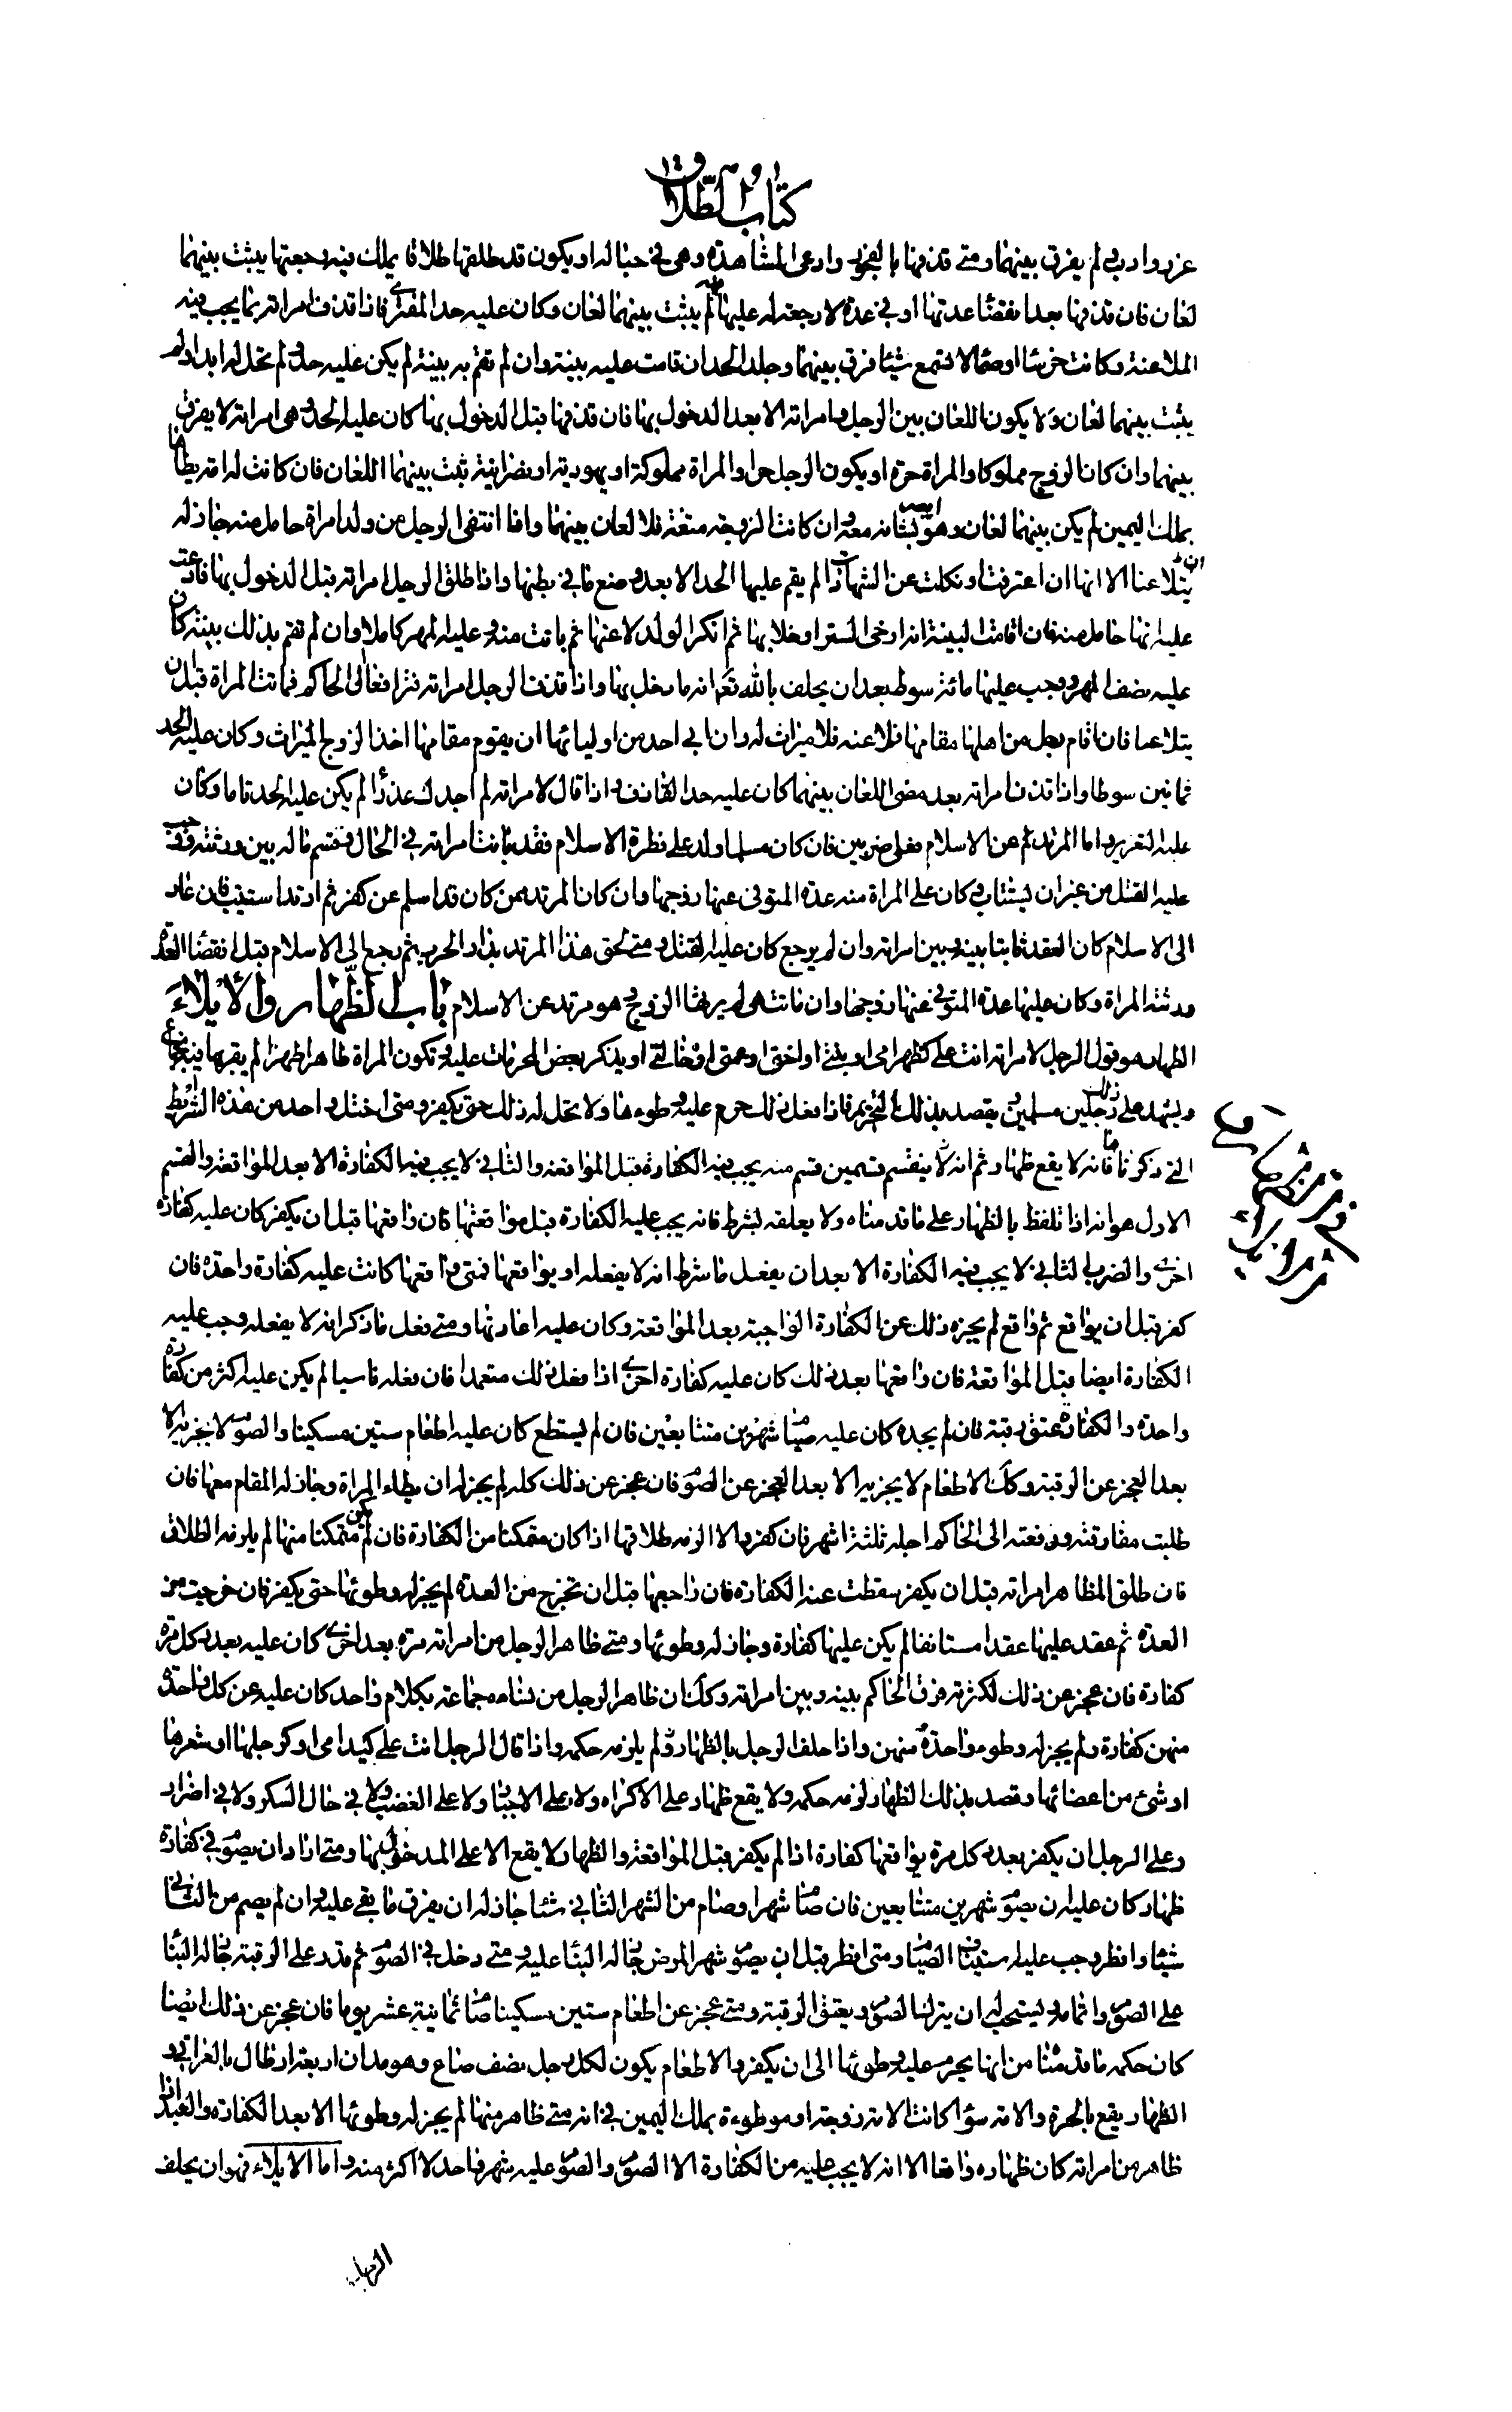 كتاب الطلاق
عزر وادب لم يفرق بينهما ومتى قذفها بالفجور وادعى المشاهدة وهي في حباله او يكون قد طلقها طلاقا يملك فيه رجعتها يثبت بينهما
لعان فان قذفها بعد انقضاء عدتها او في عدة لا رجعة له عليها لم يثبت بينهما لعان وكان عليه حد المفترى فاذا قذف امراته بما يجب فيه
الملاعنة وكانت خرسا او صما لا تسمع شيئا فرق بينهما وجلد الحد ان قامت عليه بينة وان لم تقم به بينة لم يكن عليه حد ولم تحل له ابدا ولم
يثبت بينهما لعان ولا يكون اللعان بين الرجل وامراته الا بعد الدخول بها فان قذفها قبل الدخول بها كان عليه الحد وهي امراته لا يفرق
بينهما وان كان الزوج مملوكا والمراة حرة او يكون الرجل حرا والمراة مملوكة او يهودية او نصرانية ثبت بينهما اللعان فان كانت له امة يطاها
بملك اليمين لم يكن بينهما لعان وان كانت الزوجة متعة فلا لعان بينهما واذا انتفى الرجل من ولد امراة حامل منه جاز له
ان يتلاعنا الا انها ان اعترفت او نكلت عن الشهادات لم يقم عليها الحد الا بعد وضع ما في بطنها واذا طلق الرجل امراته قبل الدخول بها فادعت
عليه انها حامل منه فان اقامت البينة انه ارخى الستر او خلا بها ثم انكر الولد لاعنها ثم بانت منه وعليه المهر كاملا وان لم تقم بذلك بينة كان
عليه نصف المهر ووجب عليها مائة سوط بعد ان يحلف بالله تعم انه ما دخل بها واذا قذف الرجل امراته فترافعا الى الحاكم فماتت المراة قبل ان
يتلاعنا فان قام رجل من اهلها مقامها فلاعنه فلا ميراث له وان ابى احد من اوليائها ان يقوم مقامها اخذ الزوج الميراث وكان عليه الحد
ثمانين سوطا واذا قذف امراته بعد مضى اللعان بينهما كان عليه حد القاذف واذا قال لامراته لم اجدك عذرا لم يكن عليه الحد تاما وكان
عليه التعزير واما المرتد عن الاسلام فعلى ضربين فان كان مسلما ولد على فطرة الاسلام فقد بانت امراته في الحال وقسم ماله بين ورثته ووجب
عليه القتل من غير ان يستتاب وكان على المراة منه عدة المتوفى عنها زوجها وان كان المرتد ممن كان قد اسلم عن كفر ثم ارتد استتيب فان عاد
الى الاسلام كان العقد ثابتا بينه وبين امراته وان لم يرجع كان عليه القتل ومتى لحق هذا المرتد بدار الحرب ثم رجع الى الاسلام قبل انقضاء العدة
ورثته المراة وكان عليها عدة المتوفى عنها زوجها وان ماتت هي لم يرثها الزوج وهو مرتد عن الاسلام باب الظهار والايلاء
الظهار هو قول الرجل لامراته انت علي كظهر امى او بنتي او اختي او عمتي او خالتي او يذكر بعض المحرمات عليه وتكون المراة طاهرا طهرا لم يقربها فيه بجماع
ويشهد على ذلك رجلين مسلمين يقصد بذلك التحريم فاذا فعل ذلك حرم عليه وطوءها ولا تحل له ذلك حتى يكفر ومتى اختل واحد من هذه الشرائط
التي ذكرناها فانه لا يقع ظهار ثم انه ينقسم قسمين قسم منه يجب فيه الكفارة قبل المواقعة والثاني لا يجب فيه الكفارة الا بعد المواقعة والقسم
الاول هو انه اذا تلفظ بالظهار على ما قدمناه ولا يعلقه بشرط فانه يجب عليه الكفارة قبل مواقعتها فان واقعها قبل ان يكفر كان عليه كفارة
اخرى والضرب الثاني لا يجب فيه الكفارة الا بعد ان يفعل ما شرط انه لا يفعله او يواقعها فمتى واقعها كانت عليه كفارة واحدة فان
كفر قبل ان يواقع ثم واقع لم يجزه ذلك عن الكفارة الواجبة بعد المواقعة وكان عليه اعادتها ومتى فعل ما ذكر انه لا يفعله وجب عليه
الكفارة ايضا قبل المواقعة فان واقعها بعد ذلك كان عليه كفارة اخرى اذا فعل ذلك متعمدا فان فعله ناسيا لم يكن عليه اكثر من كفارة
واحدة والكفارة عتق رقبة فان لم يجده كان عليه صيام شهرين متتابعين فان لم يستطع كان عليه اطعام ستين مسكينا والصوم لا يجزيه الا
بعد العجز عن الرقبة وكك الاطعام لا يجزيه الا بعد العجز عن الصوم فان عجز عن ذلك كله لم يجز له ان يطاء المراة وجاز له المقام معها فان
طلبت مفارقته ورفعته الى الحاكم اجله ثلثة اشهر فان كفر والا الزمه طلاقها اذا كان متمكنا من الكفارة فان لم يكن متمكنا منها لم يلزمه الطلاق
فان طلق المظاهر امراته قبل ان يكفر سقطت عنه الكفارة فان راجعها قبل ان تخرج من العدة لم يجز له وطوئها حتى يكفر فان خرجت من
العدة ثم عقد عليها عقدا مستانفا لم يكن عليها كفارة وجاز له وطوئها ومتى ظاهر الرجل من امراته مرة بعد اخرى كان عليه بعد كل مرة
كفارة فان عجز عن ذلك لكثرته فرق الحاكم بينه وبين امراته وكك ان ظاهر الرجل من نساءه جماعة بكلام واحد كان عليه عن كل واحدة
منهن كفارة ولم يجز له وطوء واحدة منهن واذا حلف الرجل بالظهار لم يلزمه حكمه واذا قال الرجل انت علي كيد امى او كرجلها او شعرها
او شئ من اعضائها وقصد بذلك الظهار لزمه حكمه ولا يقع ظهار على الاكراه ولا على الاجبار ولا على الغضب ولا في حال السكر ولا في اضرار
وعلى الرجل ان يكفر بعدد كل مرة يواقعها كفارة اذا لم يكفر قبل المواقعة والظهار لا يقع الا على المدخول بها ومتى اراد ان يصوم في كفارة
ظهار كان عليه ان يصوم شهرين متتابعين فان صام شهرا وصام من الشهر الثاني شيئا جاز له ان يفرق ما بقي عليه وان لم يصم من الثاني
شيئا وافطر وجب عليه استيناف الصيام ومتى افطر قبل ان يصوم شهرا لمرض جاز له البناء عليه ومتى دخل في الصوم ثم قدر على الرقبة جاز له البناء
على الصوم واتمامه ويستحب له ان يترك الصوم ويعتق الرقبة ومتى عجز عن اطعام ستين مسكينا صام ثمانية عشر يوما فان عجز عن ذلك ايضا
كان حكمه ما قدمنا من انها يحرم عليه وطوئها الى ان يكفر والاطعام يكون لكل رجل نصف صاع وهو مدان اربعة ارطال بالعراقي و
الظهار يقع بالحرة والامة سواء كانت الامة زوجة او موطوءة بملك اليمين في انه متى ظاهر منها لم يجز له وطوئها الا بعد الكفارة والعبد اذا
ظاهر من امراته كان ظهاره واقعا الا انه لا يجب عليه من الكفارة الا الصوم والصوم عليه شهر واحد لا اكثر منه واما الايلاء فهو ان يحلف